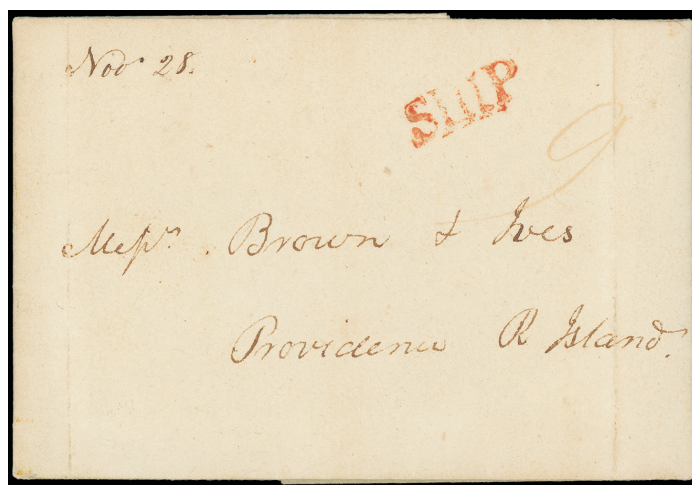 Nov 28.
SHIP
9
Messrs. Brown & Ives
Providence R Island.